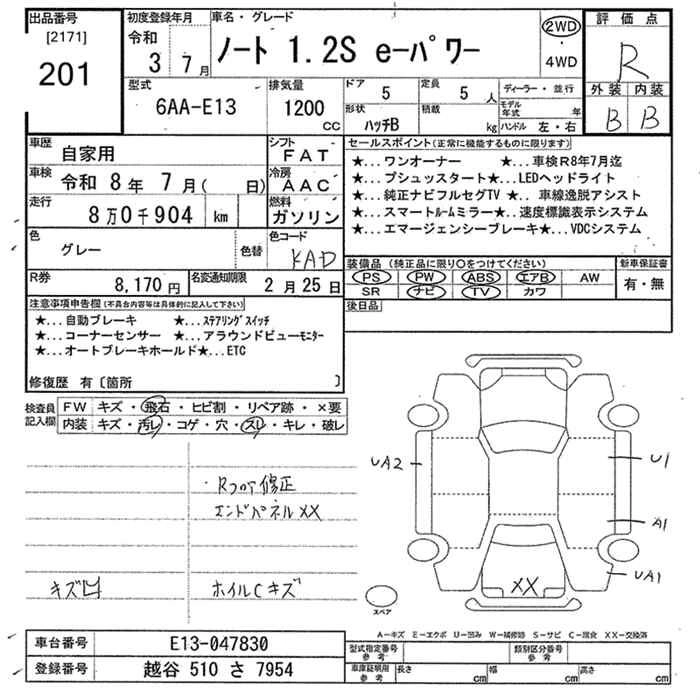 出品番号 初度登録年月 車名・グレード 2WD 評価点
[2171] 令和 ノート 1.2S e-パワー ・ R
201 3 7月 4WD
型式 排気量 ドア 定員 ディーラー・並行 外装 内装
6AA-E13 1200 CC 5 5 人 モデル年式 年 B B
形状 積載 ハンドル 左・右
ハッチB kg
車歴 自家用 シフト FAT セールスポイント(正常に機能するものに限ります)
車検 令和 8年 7月( 日) 冷房 AAC ★...ワンオーナー ★...車検R8年7月迄
★...プシュッスタート★...LEDヘッドライト
走行 8万0千904 km 燃料 ガソリン ★...純正ナビフルセグTV ★...車線逸脱アシスト
★...スマートルームミラー★...速度標識表示システム
色 グレー 色替 色コード KAD ★...エマージェンシーブレーキ★...VDCシステム
装備品(純正品に限り○をつけてください) 新車保証書
R券 8,170円 名変通知期限 2月25日 PS PW ABS エアB AW 有・無
SR ナビ TV カワ
注意事項申告欄(不具合内容等は具体的に記入して下さい) 後日品
★...自動ブレーキ ★...ステアリングスイッチ
★...コーナーセンサー ★...アラウンドビューモニター
★...オートブレーキホールド★...ETC
修復歴 有〔箇所 〕
検査員記入欄 FW キズ・飛石・ヒビ割・リペア跡・×要
内装 キズ・汚レ・コゲ・穴・スレ・キレ・破レ
UA2 U1
Rフロア修正
エンドパネルXX
A1
UA1
キズ凹 ホイルCキズ XX
スペア
A-キズ E-エクボ U-凹み W-補修跡 S-サビ C-腐食 XX-交換済
車台番号 E13-047830 型式指定番号 参考 類別区分番号 参考
登録番号 越谷 510 さ 7954 車庫証明用 参考 長さ cm 幅 cm 高さ cm